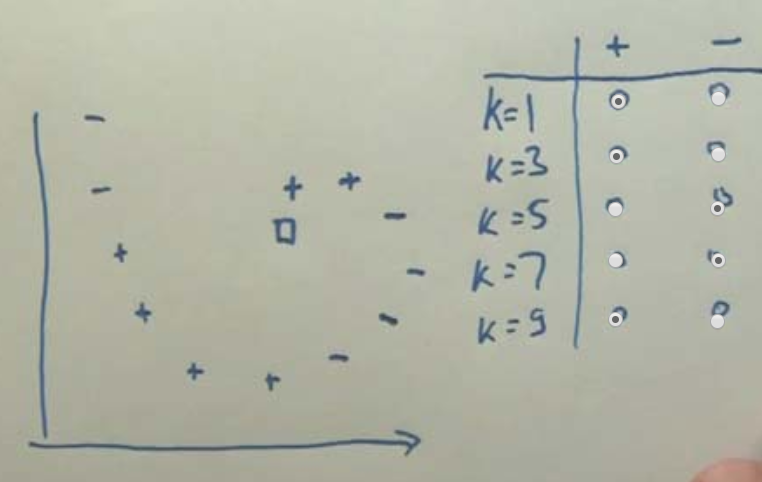 + -
K=1
K=3
K=5
K=7
K=9
- 
- + +
-
+
-
+ -
-
+ +